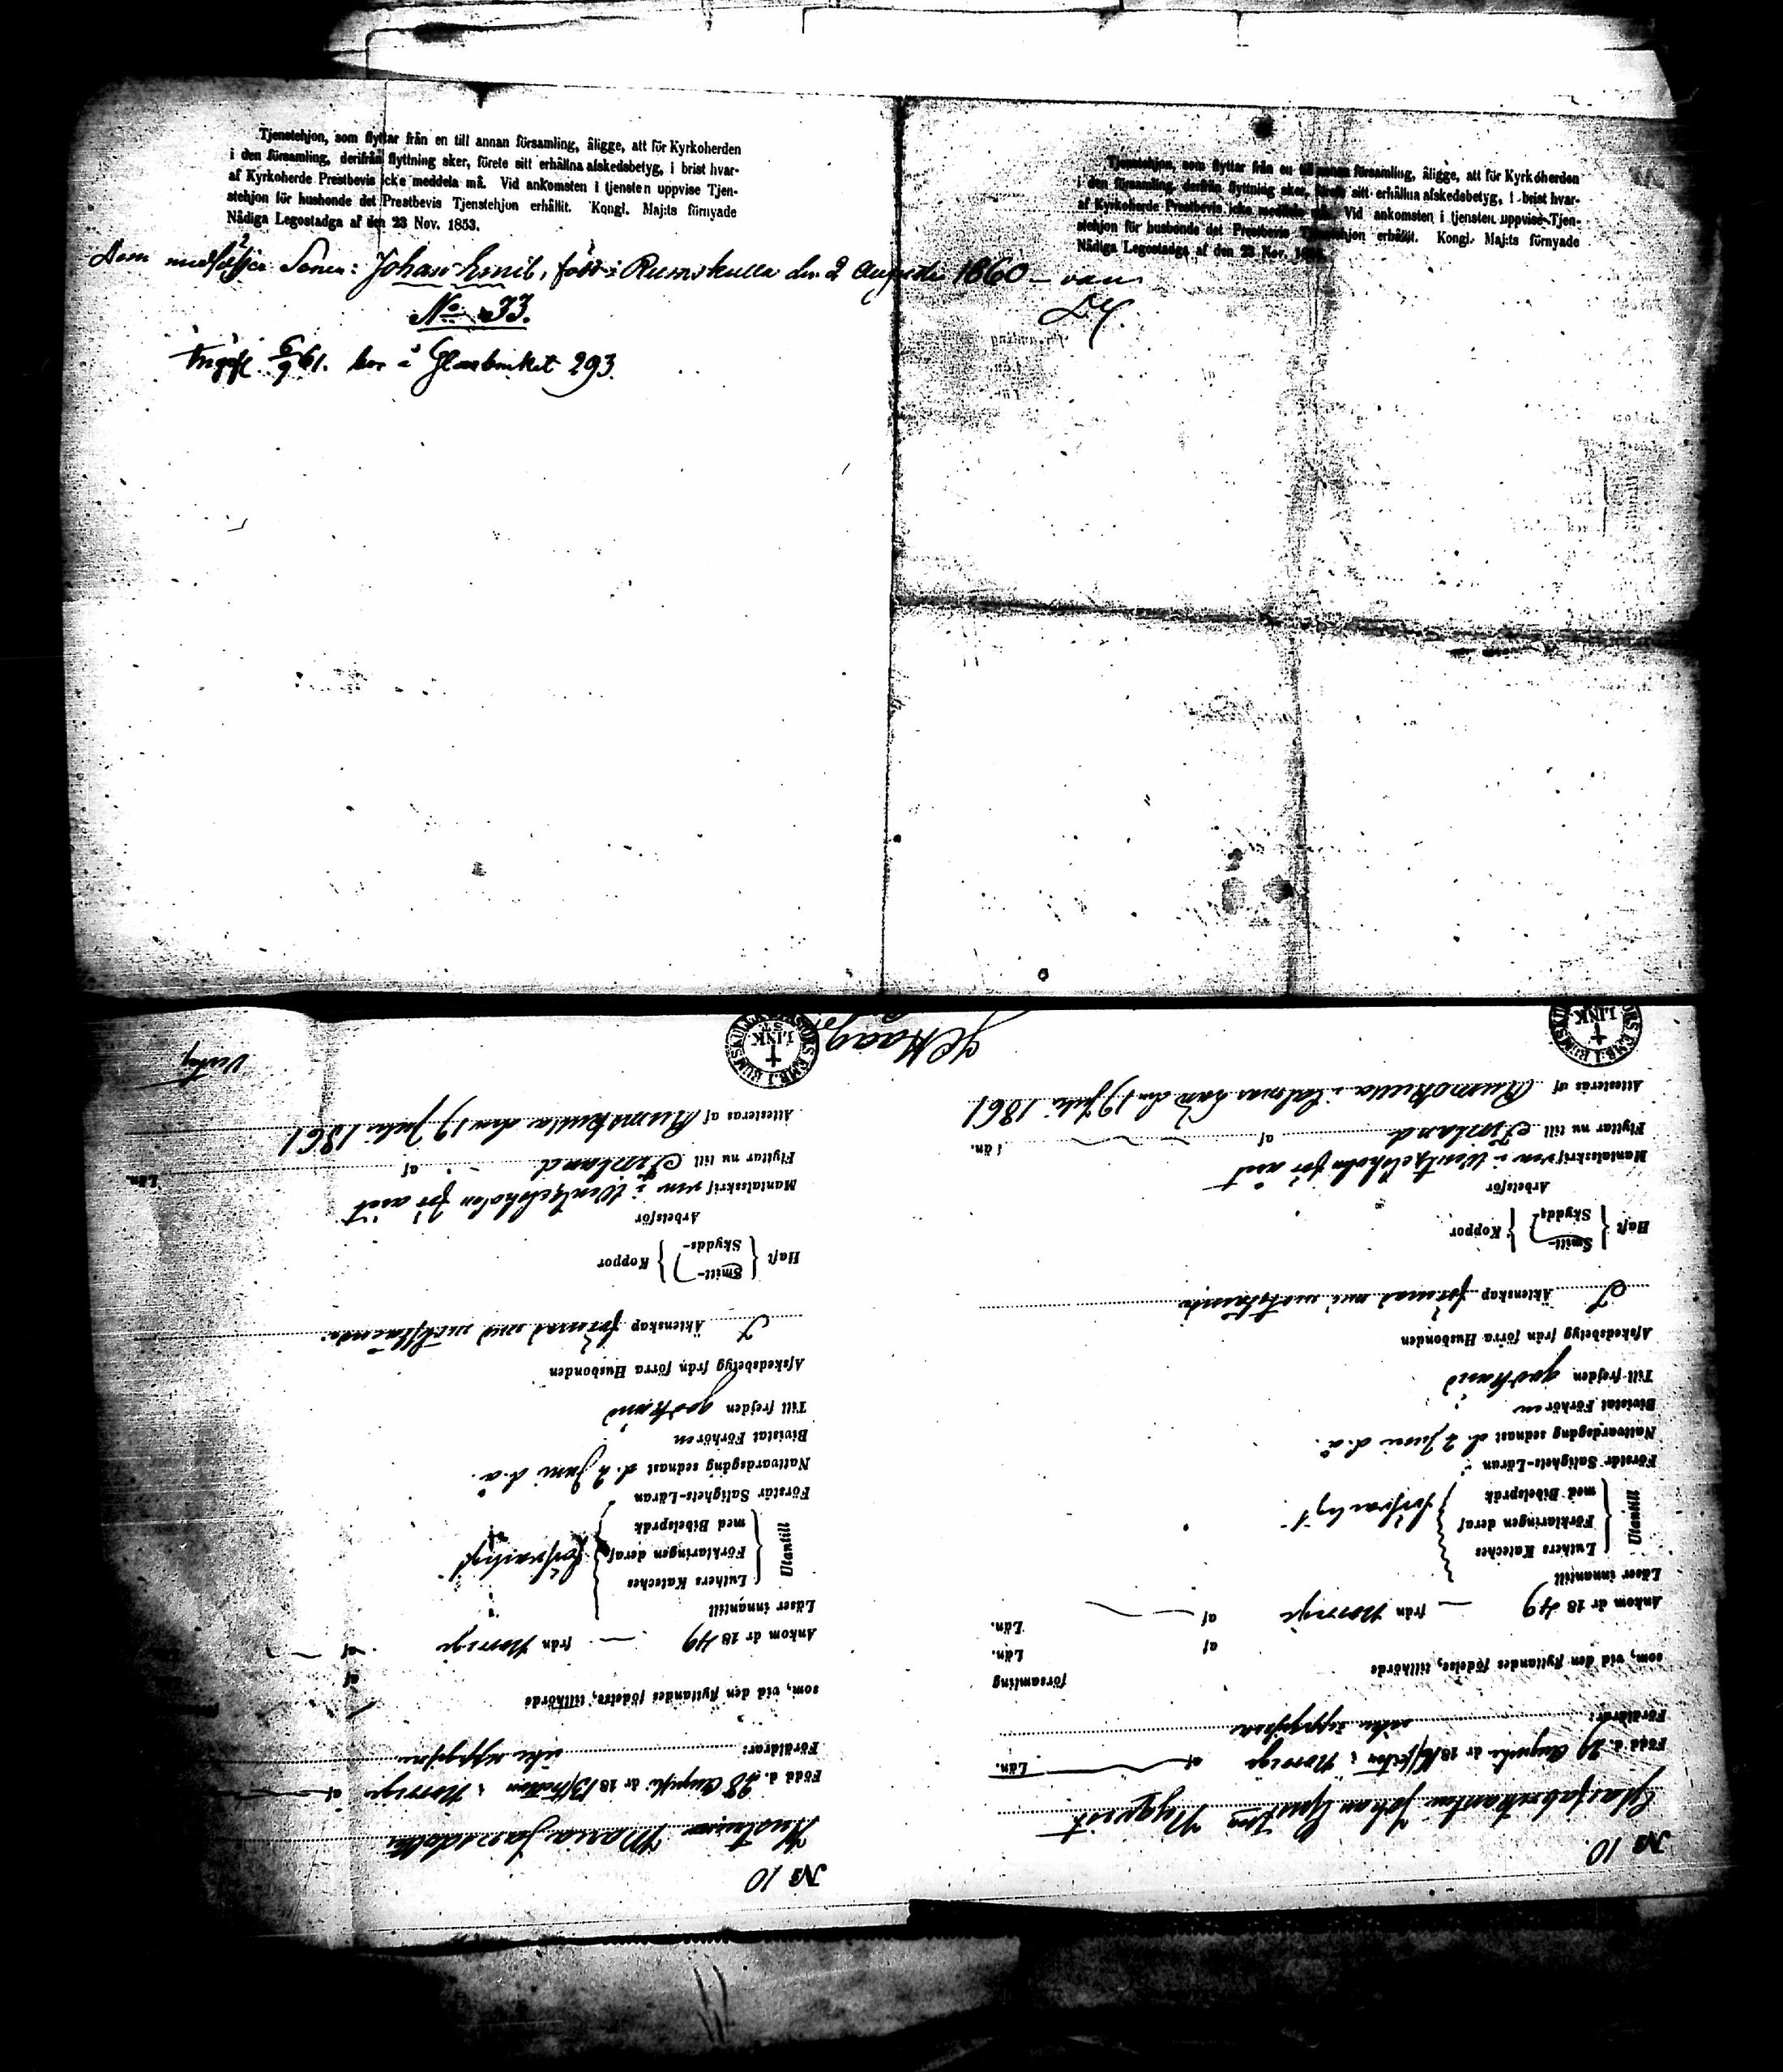 Tjenstehjon, som flyttar från en till annan församling, åligge, att för Kyrkoherden
i den församling, derifrån flyttning sker, förete sitt erhållna afskedsbetyg, i brist hvar-
af Kyrkoherde Prestbevis icke meddela må. Vid ankomsten i tjensten uppvise Tjen-
stehjon för husbonde det Prestbevis Tjenstehjon erhållit. Kongl. Maj:ts förnyade
Nådiga Legostadga af den 23 Nov. 1853.
Som medföljer Sonen: Johan Emil, född i Rumskulla den 2 Augusti 1860
No 33.
6/9 61. bor å Glasbruket 293.
Tjenstehjon, som flyttar från en till annan församling, åligge, att för Kyrkoherden
i den församling, derifrån flyttning sker, förete sitt erhållna afskedsbetyg, i brist hvar-
af Kyrkoherde Prestbevis icke meddela må. Vid ankomsten i tjensten uppvise Tjen-
stehjon för husbonde det Prestbevis Tjenstehjon erhållit. Kongl. Maj:ts förnyade
Nådiga Legostadga af den 23 Nov.
№ 10.
Glasfabrikanten Johan Gustaf Nyqvist
Född d. 29 Augusti år 18 i Norrige af Län.
Föräldrar: icke uppgifne
som, vid den flyttandes födelse, tillhörde församling
af Län.
Ankom år 1849 från Norrige af Län.
Läser innantill
Utantill
Luthers Kateches
Förklaringen deraf
med Bibelspråk
försvarligt
Förstår Salighets-Läran
Nattvardsgång sednast d. 2 Juni d.å.
Bivistat Förhören
Till frejden godkänd
Afskedsbetyg från förra Husbonden
I Äktenskap förenad med
Haft Smitt- Skydds- Koppor
Arbetsför
Mantalsskrifven i för året
Flyttar nu till Finland af Län.
Attesteras af Rumskulla i Calmar Län den 19 Juli 1861
RUMSKULLA PASTORS EMB. I LINK. ST.
№ 10
Hustrun Maria Jansdotter
Född d. 28 Augusti år 18 i Norrige af
Föräldrar: icke uppgifne
som, vid den flyttandes födelse, tillhörde
af
Ankom år 1849 från Norrige af
Läser innantill
Utantill
Luthers Kateches
Förklaringen deraf
med Bibelspråk
försvarligt
Förstår Salighets-Läran
Nattvardsgång sednast d. 2 Juni d.å.
Bivistat Förhören
Till frejden godkänd
Afskedsbetyg från förra Husbonden
I Äktenskap förenad med
Haft Smitt- Skydds- Koppor
Arbetsför
Mantalsskrifven i för året
Flyttar nu till Finland af Län.
Attesteras af Rumskulla den 19 Juli 1861
RUMSKULLA PASTORS EMB. I LINK. ST.